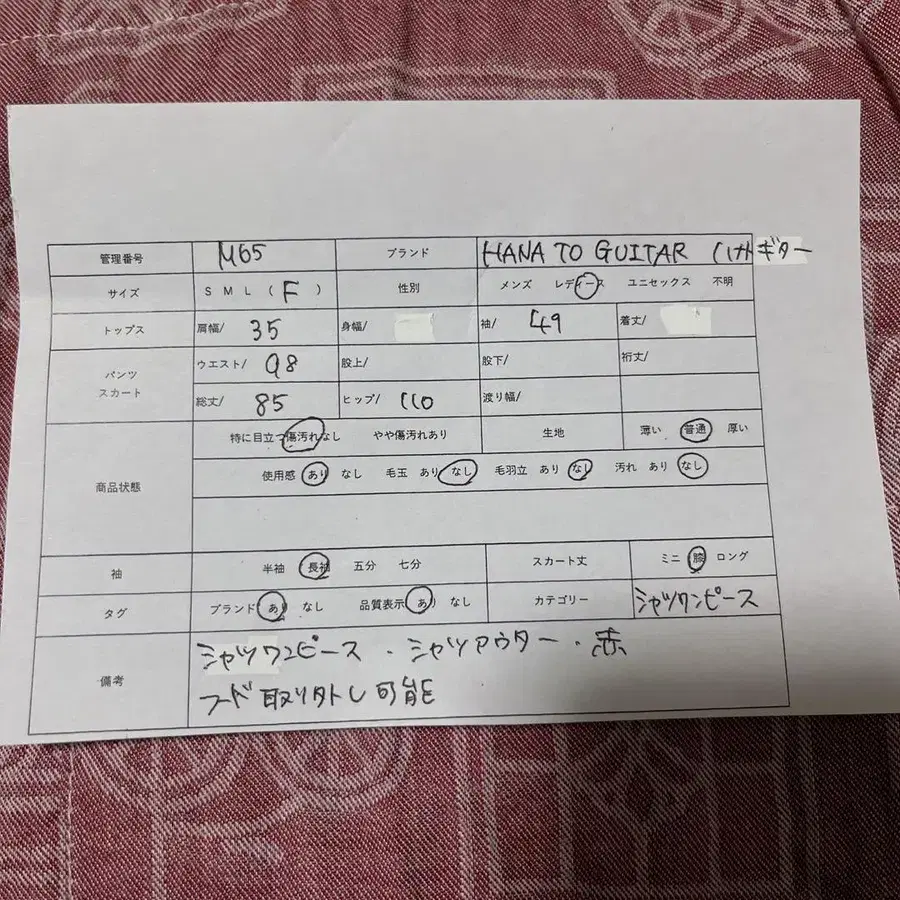 管理番号 M65 ブランド HANA TO GUITAR (ハナトギター
サイズ S M L ( F ) 性別 メンズ レディース ユニセックス 不明
トップス 肩幅/ 35 身幅/ 袖/ 49 着丈/
パンツ スカート ウエスト/ 98 股上/ 股下/ 裄丈/
総丈/ 85 ヒップ/ 110 渡り幅/
商品状態 特に目立つ傷汚れなし やや傷汚れあり 生地 薄い 普通 厚い
使用感 あり なし 毛玉 あり なし 毛羽立 あり なし 汚れ あり なし
袖 半袖 長袖 五分 七分 スカート丈 ミニ 膝 ロング
タグ ブランド あり なし 品質表示 あり なし カテゴリー シャツワンピース
備考 シャツワンピース・シャツアウター・赤
フード取り外し可能